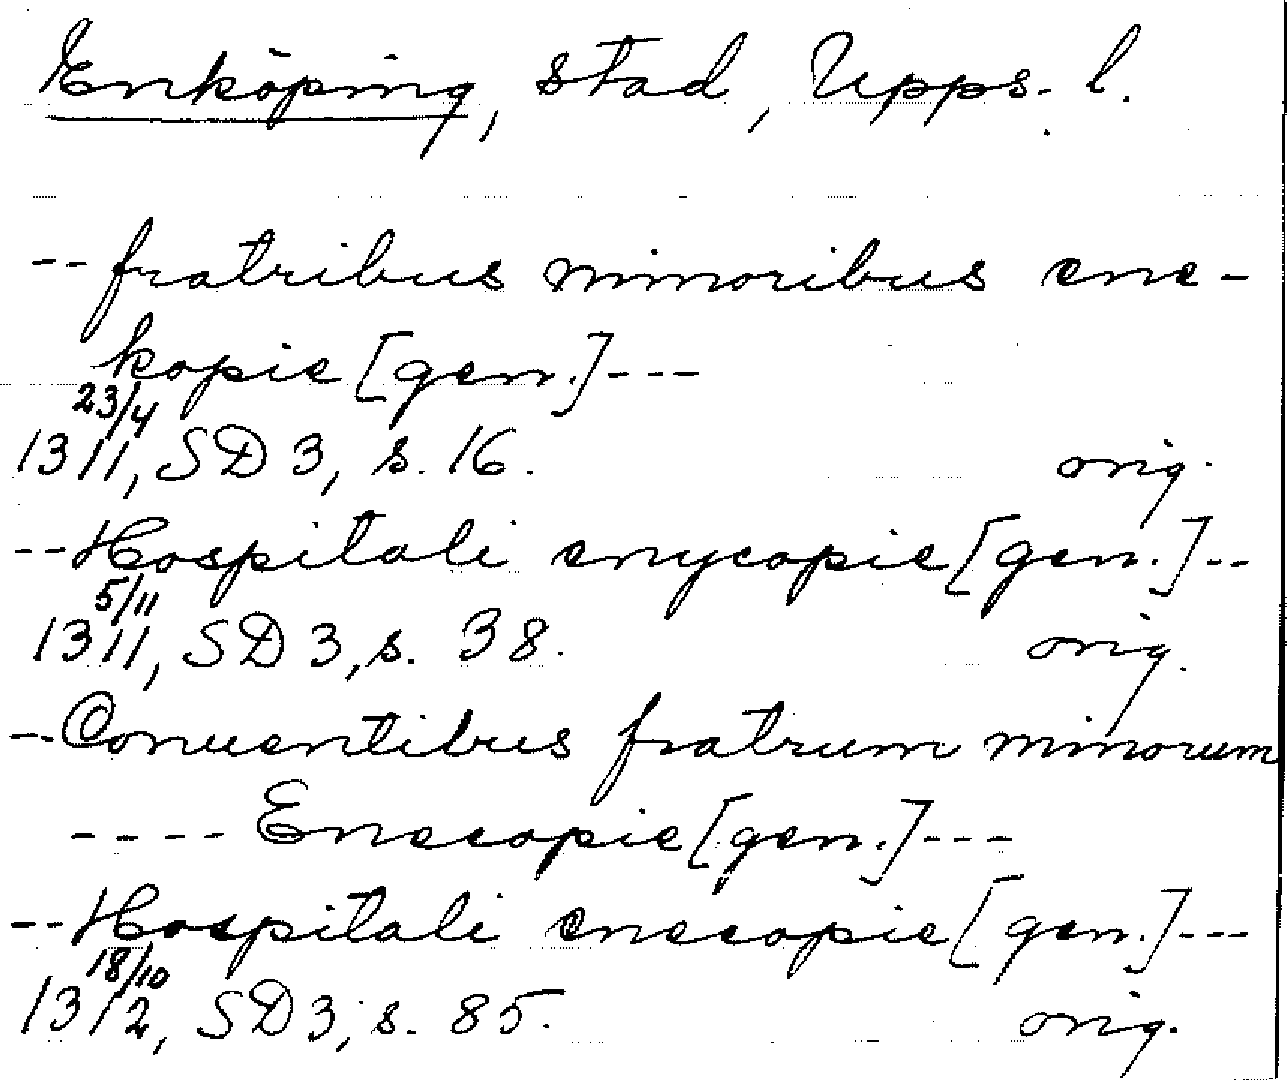 Enköping, stad, Upps. l.
-- fratribus minoribus ene-
kopie [gen.] ---
23/4
1311, SD 3, s. 16. orig.
-- Hospitali enycopie [gen.] --
5/11
1311, SD 3, s. 38. orig.
-- Conuentibus fratrum minorum
---- Enecopie [gen.] ---
-- Hospitali enecopie [gen.] ---
18/10
1312, SD 3, s. 85. orig.